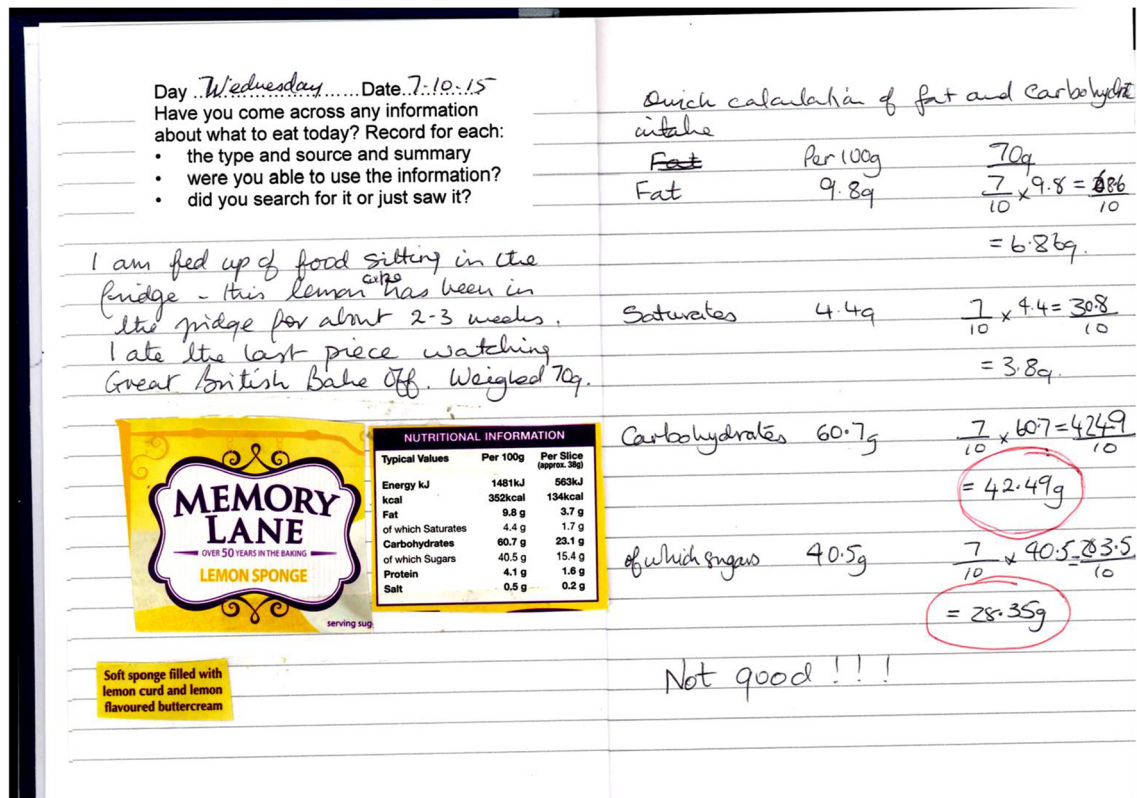 Day ..Wednesday......Date..7.10.15
Have you come across any information
about what to eat today? Record for each:
• the type and source and summary
• were you able to use the information?
• did you search for it or just saw it?
I am fed up of food sitting in the
cake
fridge – this lemon has been in
the fridge for about 2-3 weeks.
I ate the last piece watching
Great British Bake Off. Weighed 70g.
MEMORY
LANE
OVER 50 YEARS IN THE BAKING
LEMON SPONGE
serving sug
NUTRITIONAL INFORMATION
Typical Values Per 100g Per Slice
(approx. 38g)
Energy kJ 1481kJ 563kJ
kcal 352kcal 134kcal
Fat 9.8 g 3.7 g
of which Saturates 4.4 g 1.7 g
Carbohydrates 60.7 g 23.1 g
of which Sugars 40.5 g 15.4 g
Protein 4.1 g 1.6 g
Salt 0.5 g 0.2 g
Soft sponge filled with
lemon curd and lemon
flavoured buttercream
Quick calculation of fat and Carbohydrate
intake
Fat Per 100g 70g
Fat 9.8g 7/10 × 9.8 = 686/10
= 6.86g.
Saturates 4.4g 7/10 × 4.4 = 30.8/10
= 3.8g.
Carbohydrates 60.7g 7/10 × 60.7 = 424.9/10
= 42.49g
of which sugars 40.5g 7/10 × 40.5 = 283.5/10
= 28.35g
Not good !!!